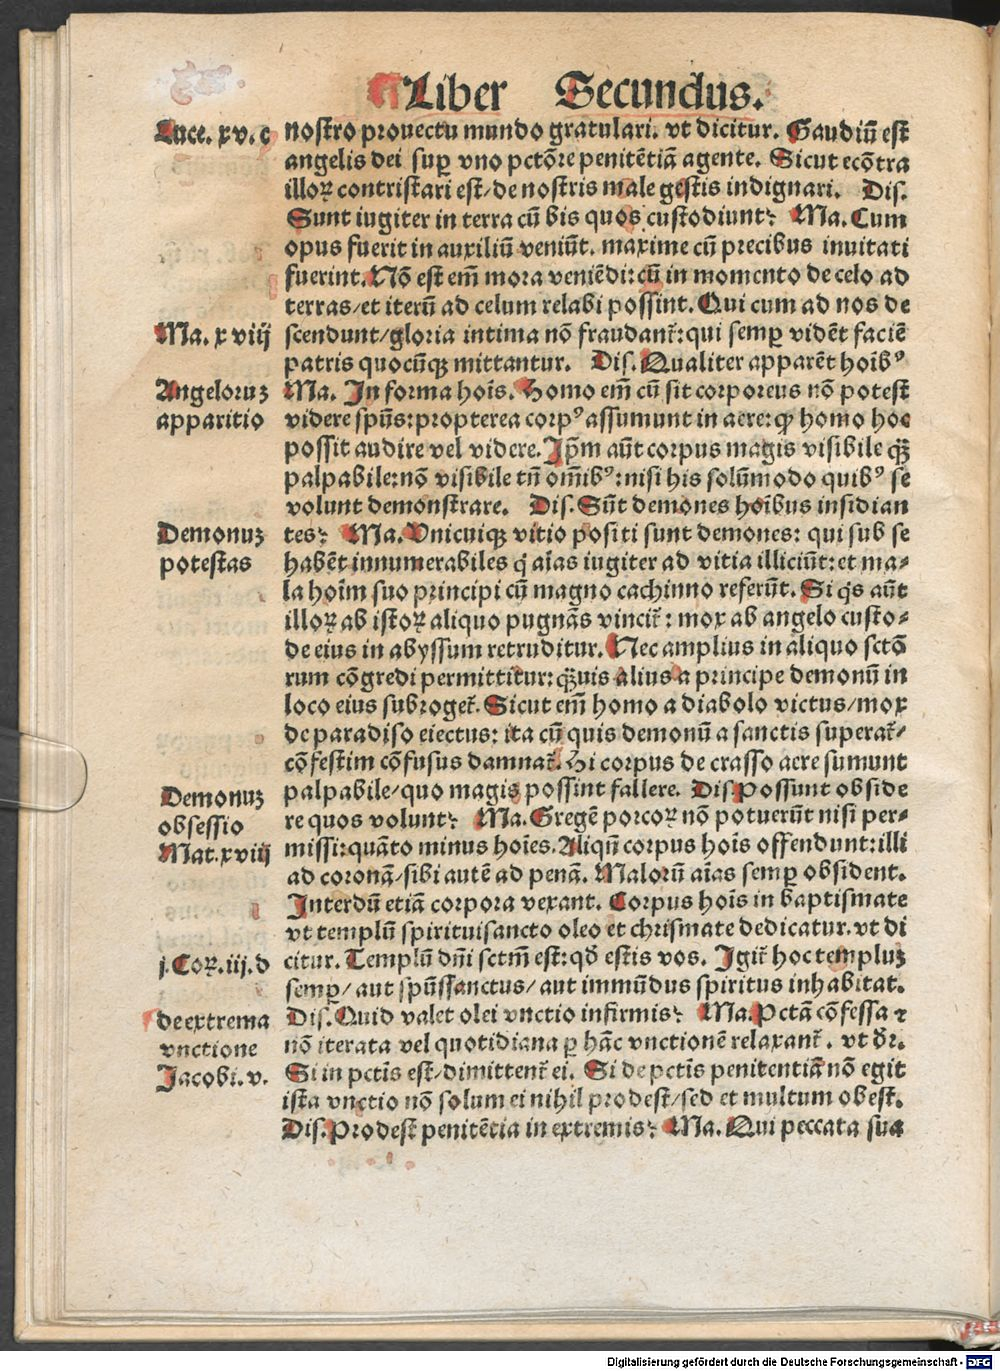 Liber Secundus.
Luce. xv. c
nostro prouectu mundo gratulari. vt dicitur. Gaudiū est
angelis dei suꝑ vno pctōre penitētiā agente. Sicut ecōtra
illoꝝ contristari est/de nostris male gestis indignari. Dis.
Sunt iugiter in terra cū his quos custodiunt? Ma. Cum
opus fuerit in auxiliū veniūt. maxime cū precibus inuitati
fuerint. Nō est em̄ mora veniēdi: cū in momento de celo ad
terras/et iterū ad celum relabi possint. Qui cum ad nos de
Ma. xviij
scendunt/gloria intima nō fraudant᷑: qui semꝑ vidēt faciē
patris quocūqꝫ mittantur. Dis. Qualiter apparēt hoībꝰ
Angeloruꝫ
apparitio
Ma. In forma hoīs. Homo em̄ cū sit corporeus nō potest
videre spūs: propterea corpꝰ assumunt in aere: ꝙ homo hoc
possit audire vel videre. Ip̄m aūt corpus magis visibile qꝫ̄
palpabile: nō visibile tn̄ om̄ibꝰ: nisi his solūmodo quibꝰ se
volunt demonstrare. Dis. Sūt demones hoībus insidian
Demonuꝫ
potestas
tes? Ma. Vnicuiqꝫ vitio positi sunt demones: qui sub se
habēt innumerabiles q̇ aīas iugiter ad vitia illiciūt: et ma⸗
la hoīm suo principi cū magno cachinno referūt. Si q̇s aūt
illoꝝ ab istoꝝ aliquo pugnās vincit᷑: mox ab angelo custo⸗
de eius in abyssum retruditur. Nec amplius in aliquo sctō
rum cōgredi permittitur: qꝫ̄uis alius a principe demonū in
loco eius subroget᷑. Sicut em̄ homo a diabolo victus/mox
de paradiso eiectus: ita cū quis demonū a sanctis superat᷑⸗
cōfestim cōfusus damnat᷑. Hi corpus de crasso aere sumunt
Demonuꝫ
obsessio
Mat. xviij
palpabile/quo magis possint fallere. Dis. Possunt obside
re quos volunt? Ma. Gregē porcoꝝ nō potuerūt nisi per⸗
missi: quāto minus hoīes. Aliqn̄ corpus hoīs offendunt: illi
ad coronā/sibi autē ad penā. Maloꝛū aīas semꝑ obsident.
Interdū etiā corpora vexant. Corpus hoīs in baptismate
vt templū spirituisancto oleo et chrismate dedicatur. vt di
j. Coꝝ. iij. d
citur. Templū dn̄i sctm̄ est: qd̄ estis vos. Igit᷑ hoc templuꝫ
semꝑ/ aut spūssanctus/ aut immūdus spiritus inhabitat.
de extrema
vnctione
Jacobi. v.
Dis. Quid valet olei vnctio infirmis? Ma. Pctā cōfessa ⁊
nō iterata vel quotidiana ꝑ hāc vnctionē relaxant᷑. vt dr̄.
Si in pctīs est/dimittent᷑ ei. Si de pctīs penitentiā nō egit
ista vnctio nō solum ei nihil prodest/sed et multum obest.
Dis. Prodest penitētia in extremis? Ma. Qui peccata sua
Digitalisierung gefördert durch die Deutsche Forschungsgemeinschaft - DFG